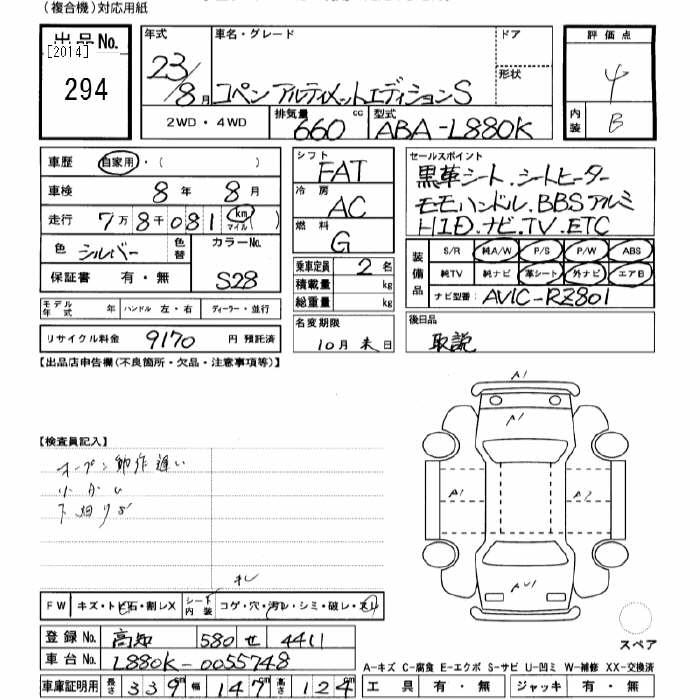 （複合機）対応用紙
出品No. [2014] 294
年式 23/8月
車名・グレード コペン アルティメットエディションS
ドア
形状
評価点 4
内装 B
2WD・4WD
排気量 660 cc
型式 ABA-L880K
車歴 自家用・（ ）
車検 8年 8月
走行 7万8千081 km マイル ( )
色 シルバー 色替
カラーNo. S28
保証書 有・無
シフト FAT
冷房 AC
燃料 G
乗車定員 2名
積載量 kg
総重量 kg
セールスポイント
黒革シート.シートヒーター
モモハンドル.BBSアルミ
HID.ナビ.TV.ETC
装備品 S/R 純A/W P/S P/W ABS
純TV 純ナビ 革シート 外ナビ エアB
ナビ型番: AVIC-RZ801
モデル年式 年 ハンドル 左・右 ディーラー・並行
リサイクル料金 9170 円 預託済
名変期限 10月末日
後日品 取説
【出品店申告欄(不良箇所・欠品・注意事項等)】
【検査員記入】
オープン動作遅い
小カキ
下廻りサビ
A1
A1
A1
AU1
FW キズ・トビ石・割レX
シート内装 コゲ・穴・汚レ・シミ・破レ・スレ
登録No. 高知 580 せ 4411
車台No. L880K-0055748
車庫証明用 長さ 339cm 幅 147cm 高さ 124cm
スペア
A-キズ C-腐食 E-エクボ S-サビ U-凹ミ W-補修 XX-交換済
工具 有・無 ジャッキ 有・無